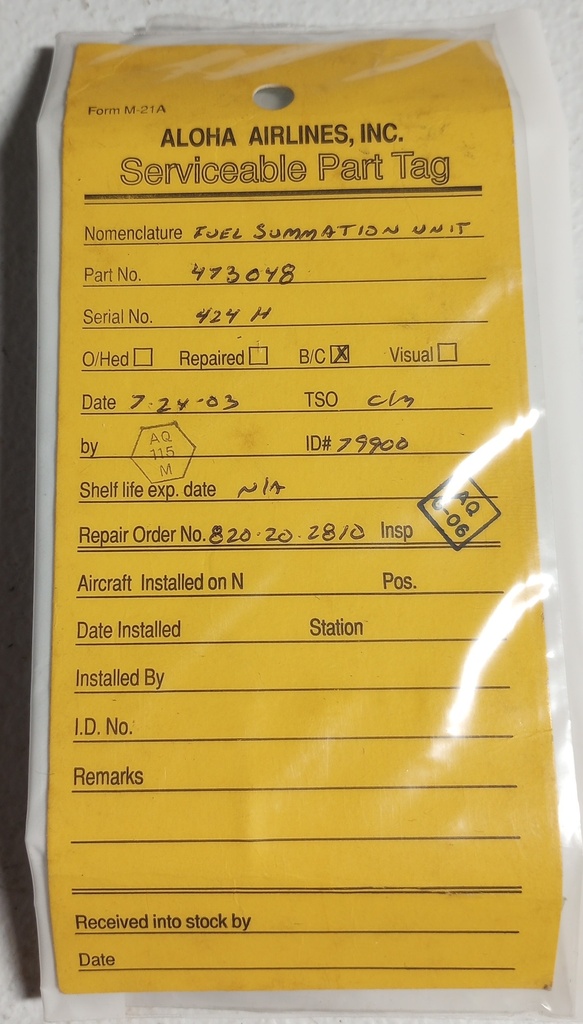 Form M-21A
ALOHA AIRLINES, INC.
Serviceable Part Tag
Nomenclature FUEL SUMMATION UNIT
Part No. 473048
Serial No. 424 H
O/Hed Repaired B/C X Visual
Date 7-24-03 TSO
by AQ 115 M ID# 79900
Shelf life exp. date N/A
Repair Order No. 820-20-2810 Insp AQ
Aircraft Installed on N Pos.
Date Installed Station
Installed By
I.D. No.
Remarks
Received into stock by
Date